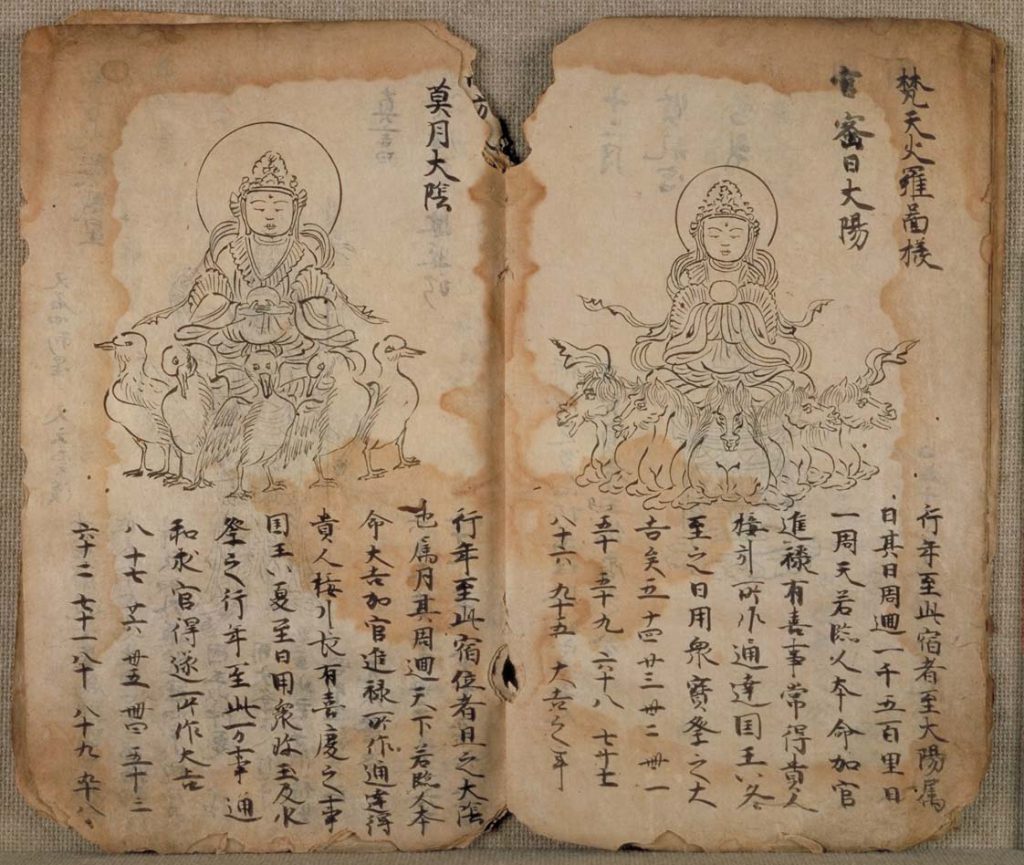 梵天火羅啚様
密日大陽
行年至此宿者至大陽属
日其日周迴一千五百里日
一周天若臨人本命加官
進禄有喜事常得貴人
接引所作通達国王以冬
至之日用衆寳祭之大
吉矣五十四廿三卅二卌一
五十 五十九 六十八 七十七
八十六 九十五 大吉之年
莫月大陰
行年至此宿位者且之大陰
也属月其周迴天下若臨人本
命大吉加官進禄所作通達得
貴人接引長有喜慶之事
国王以夏至日用衆珎玉及水
祭之行年至此万事通
和求官得遂所作大吉
八 十七 廿六 卅五 卌四 五十三
六十二 七十一 八十 八十九 九十八